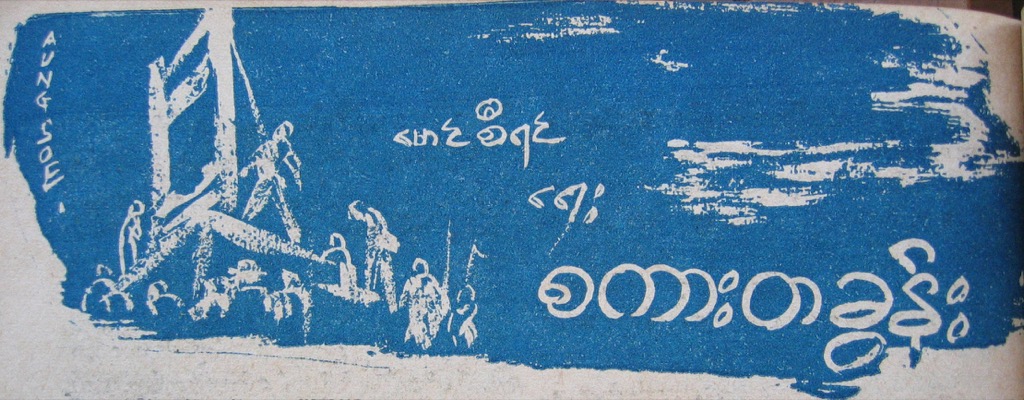 AUNG SOE
မောင်စီရင်
ရေး
စကားတခွန်း